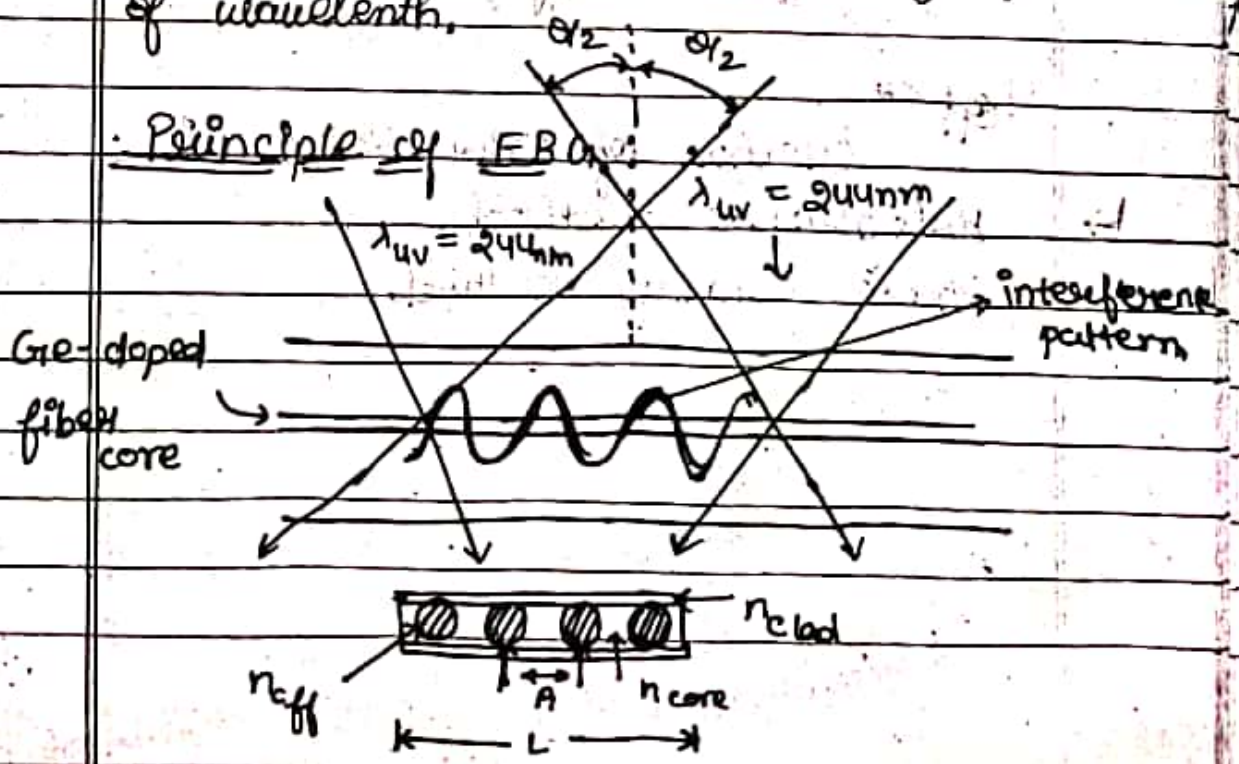 of wavelenth.
θ/2 θ/2
Principle of FBG
λuv = 244nm
λuv = 244nm
interference
pattern
Ge-doped
fiber
core
nclad
neff
Λ
ncore
L